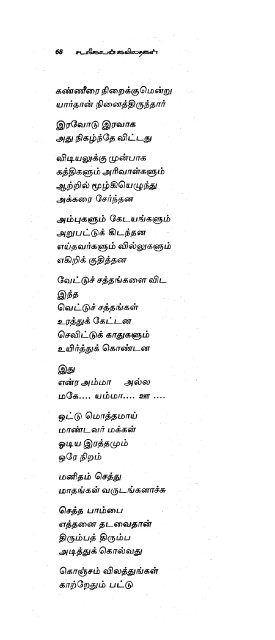 68
கண்ணீரை நிறைக்குமென்று
யார்தான் நினைத்திருந்தார்
இரவோடு இரவாக
அது நிகழ்ந்தே விட்டது
விடியலுக்கு முன்பாக
கத்திகளும் அரிவாள்களும்
ஆற்றில் மூழ்கியெழுந்து
அக்கரை சேர்ந்தன
அம்புகளும் கேடயங்களும்
அறுபட்டுக் கிடந்தன
எய்தவர்களும் வில்லுகளும்
எகிறிக் குதித்தன
வேட்டுச் சத்தங்களை விட
இந்த
வெட்டுச் சத்தங்கள்
உரத்துக் கேட்டன
செவிட்டுக் காதுகளும்
உயிர்த்துக் கொண்டன
இது
என்ர அம்மா அல்ல
மகே.... யம்மா.... ஊ ....
ஒட்டு மொத்தமாய்
மாண்டவர் மக்கள்
ஓடிய இரத்தமும்
ஒரே நிறம்
மனிதம் செத்து
மாதங்கள் வருடங்களாச்சு
செத்த பாம்பை
எத்தனை தடவைதான்
திரும்பத் திரும்ப
அடித்துக் கொல்வது
கொஞ்சம் விலத்துங்கள்
காற்றேதும் பட்டு